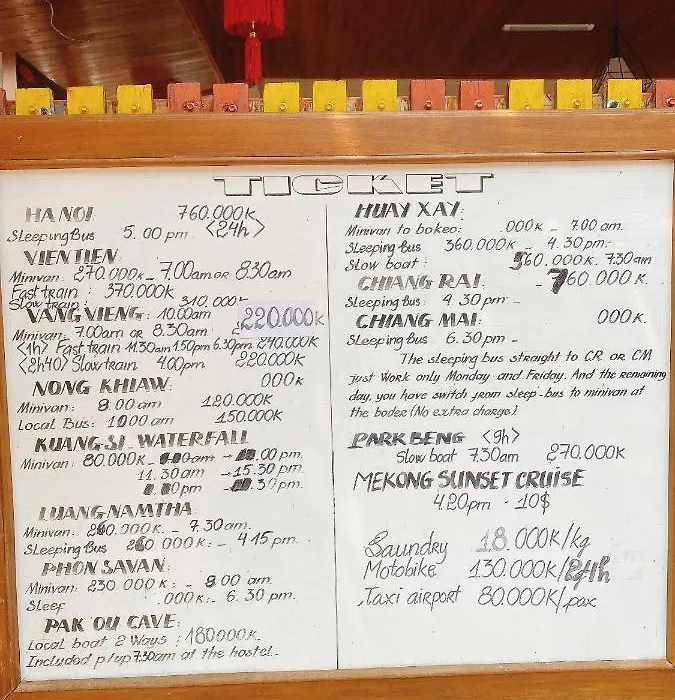 TICKET
HANOI 760.000K
Sleeping Bus 5.00 pm <24h>
VIENTIEN
Minivan: 270.000K - 7.00am or 8.30am
Fast train : 370.000K
Slow train : 310.000K
VANG VIENG: 10.00am 220.000K
Minivan: 7.00am or 8.30am
<1h> Fast train 11.30am 1.50pm 6.30pm 240.000K
<2h40> Slow train 4.00pm 220.000K
NONG KHIAW: 000K
Minivan: 9.00 am 120.000K
Local Bus: 10.00 am 150.000K
KUANG SI WATERFALL
Minivan: 80.000K - → .00 pm
11.30 am → 15.30 pm
.00pm → .30pm.
LUANG NAMTHA
Minivan: 260.000K - 7.30 am.
Sleeping Bus 260.000K: - 4.15 pm.
PHONSAVAN:
Minivan: 230.000K: - 8.00 am
Sleep .000K: - 6.30 pm.
PAK OU CAVE:
Local boat 2 Ways : 180000K.
Included p/up 7.30am at the hostel.
HUAY XAY:
Minivan to bokeo: .000K - 7.00 am.
Sleeping Bus 360.000K - 4.30 pm.
Slow boat : 560.000K. 7.30am
CHIANG RAI. - 760.000K.
Sleeping Bus: 4.30 pm -
CHIANG MAI: 000K.
Sleeping Bus: 6.30 pm -
The sleeping bus straight to CR OR CM
just Work only Monday and Friday. And the remaining
day, you have switch from sleep-bus to minivan at
the boder (No extra charge)
PARKBENG <9h>
Slow boat 7.30am 270.000K
MEKONG SUNSET CRUISE
4.20pm - 10$
Laundry 18.000K/kg
Motobike 130.000K/24h
Taxi airport 80.000K/pax